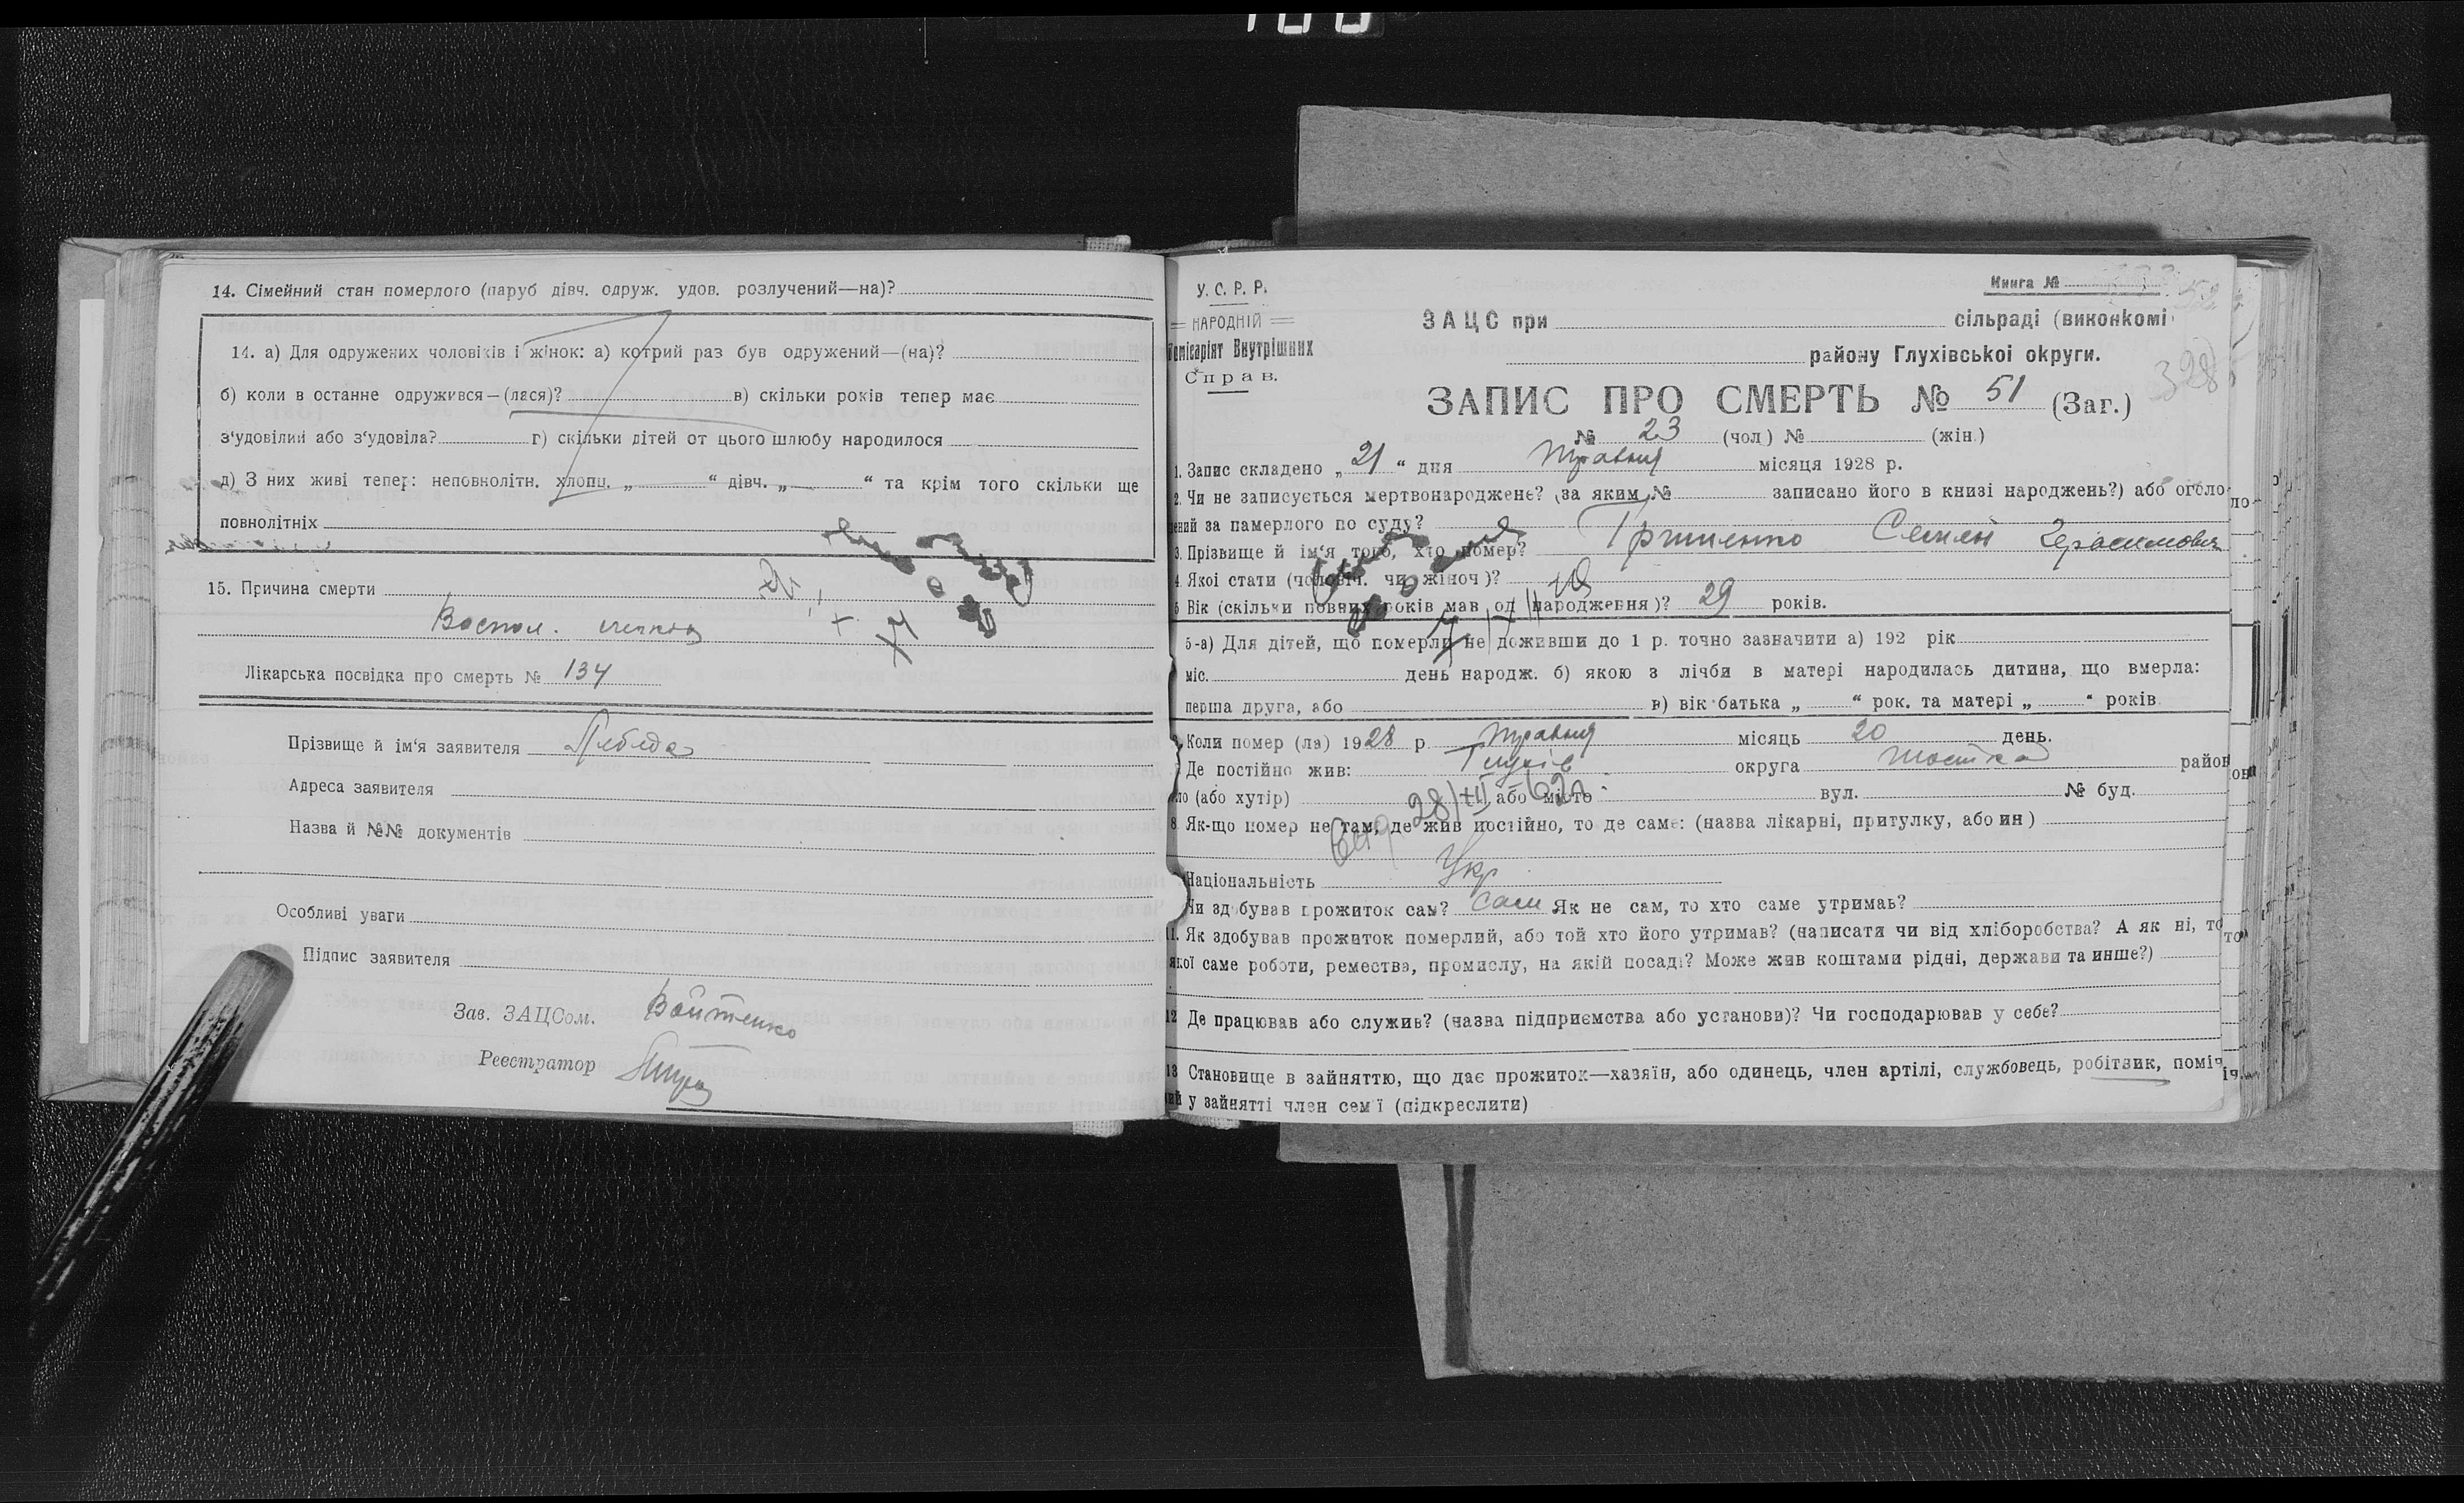 14. Сімейний стан померлого (паруб дівч. одруж. удов. розлучений—на)?
14. а) Для одружених чоловіків і жінок: а) котрий раз був одружений—(на)?
б) коли в останне одружився—(лася)? в) скільки років тепер має
з'удовілий або з'удовіла? г) скільки дітей от цього шлюбу народилося
д) З них живі тепер: неповнолітн. хлопц. „ “ дівч. „ “ та крім того скільки ще
повнолітніх
15. Причина смерти
Воспол.
Лікарська посвідка про смерть № 134
Прізвище й ім'я заявителя Лебеда
Адреса заявителя
Назва й №№ документів
Особливі уваги
Підпис заявителя
Зав. ЗАЦСом. Войтенко
Реєстратор
У. С. Р. Р.
НАРОДНІЙ
Комісаріят Внутрішних
Справ.
Книга №
ЗАЦС при сільраді (виконкомі
району Глухівської округи.
328
ЗАПИС ПРО СМЕРТЬ № 51 (Заг.)
№ 23 (чол) № (жін.)
1. Запис складено „21“ дня Травня місяця 1928 р.
2. Чи не записується мертвонароджене? (за яким № записано його в книзі народжень?) або оголо
ений за памерлого по суду?
3. Прізвище й ім'я того, хто помер? Гришенко Семен Герасимович
4. Якої стати (чоловіч. чи жіноч)? Ч
5 Вік (скільки повних років мав од народження)? 29 років.
5-а) Для дітей, що померли не доживши до 1 р. точно зазначити а) 192 рік
міс. день народж. б) якою з лічби в матері народилась дитина, що вмерла:
перша друга, або в) вік батька „ “ рок. та матері „ “ років
Коли помер (ла) 1928 р Травня місяць 20 день.
Де постійно жив: Глухів округа Шостка район
ло (або хутір) або місто вул. № буд.
28/XII-62
8. Як-що помер не там, де жив постійно, то де саме: (назва лікарні, притулку, або ин)
Національність Укр
Чи здобував прожиток сам? сам Як не сам, то хто саме утримав?
11. Як здобував прожиток померлий, або той хто його утримав? (написати чи від хліборобства? А як ні, то
якої саме роботи, ремества, промислу, на якій посаді? Може жив коштами рідні, держави та инше?)
12 Де працював або служив? (назва підприємства або установи)? Чи господарював у себе?
13 Становище в зайняттю, що дає прожиток—хазяїн, або одинець, член артілі, службовець, робітник, поміч
ний у зайнятті член сем'ї (підкреслити)